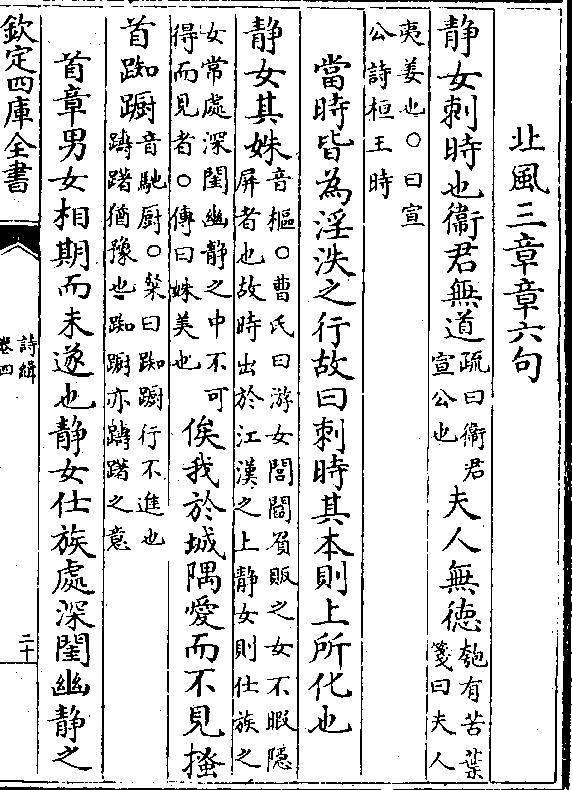 北風三章章六句
静女刺時也衞君無道
疏曰衞君
宣公也
夫人無徳
匏有苦葉
箋曰夫人
夷姜也○曰宣
公詩桓王時
當時皆為淫泆之行故曰刺時其本則上所化也
静女其姝
音樞○曹氏曰游女閭閻負販之女不暇隱
屏者也故時出於江漢之上静女則仕族之
女常處深閨幽静之中不可
得而見者○傳曰姝美也
俟我於城隅愛而不見搔
首踟蹰
音馳厨○粲曰踟蹰行不進也
躊躇猶豫也踟蹰亦躊躇之意
首章男女相期而未遂也静女仕族處深閨幽静之
欽定四庫全書
詩緝
卷四
二十